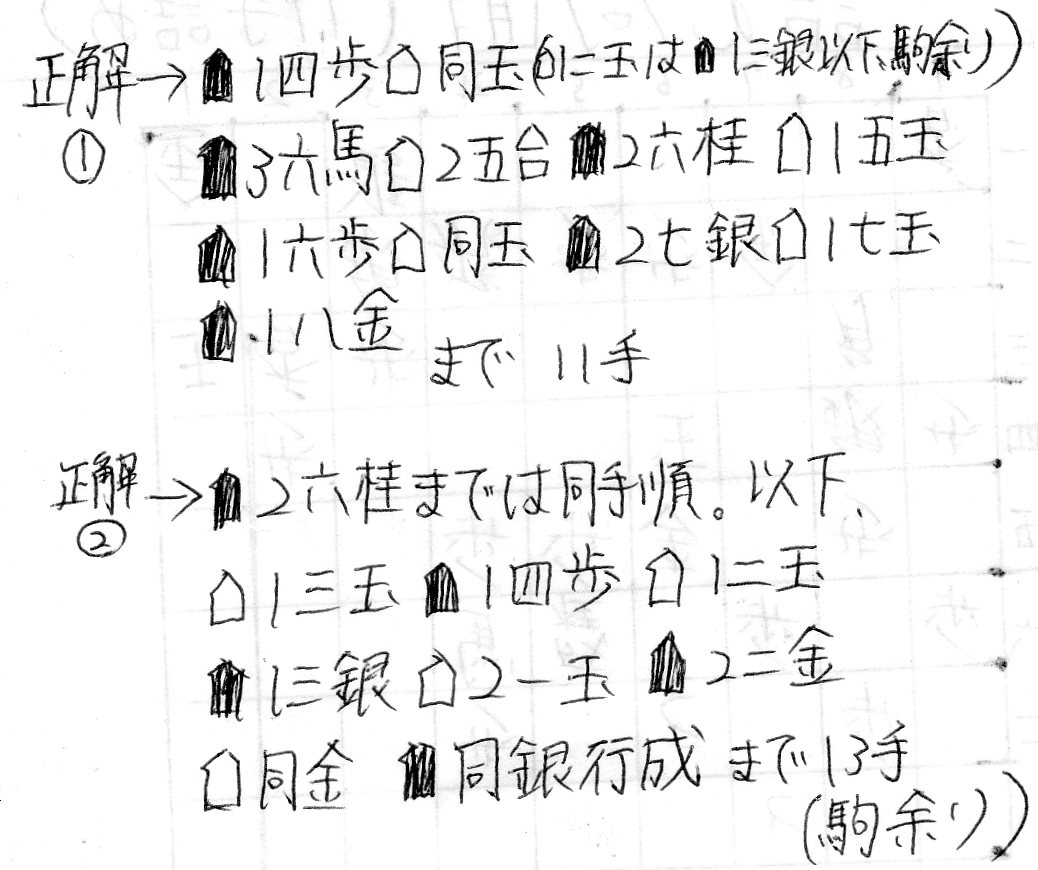 正解→☗1四歩☖同玉(☖1二玉は☗1三銀以下、駒余り)
① ☗3六馬☖2五合☗2六桂☖1五玉
☗1六歩☖同玉☗2七銀☖1七玉
☗1八金まで11手
正解→☗2六桂までは同手順。以下、
② ☖1三玉☗1四歩☖1二玉
☗1三銀☖2一玉☗2二金
☖同金☗同銀行成まで13手
(駒余り)